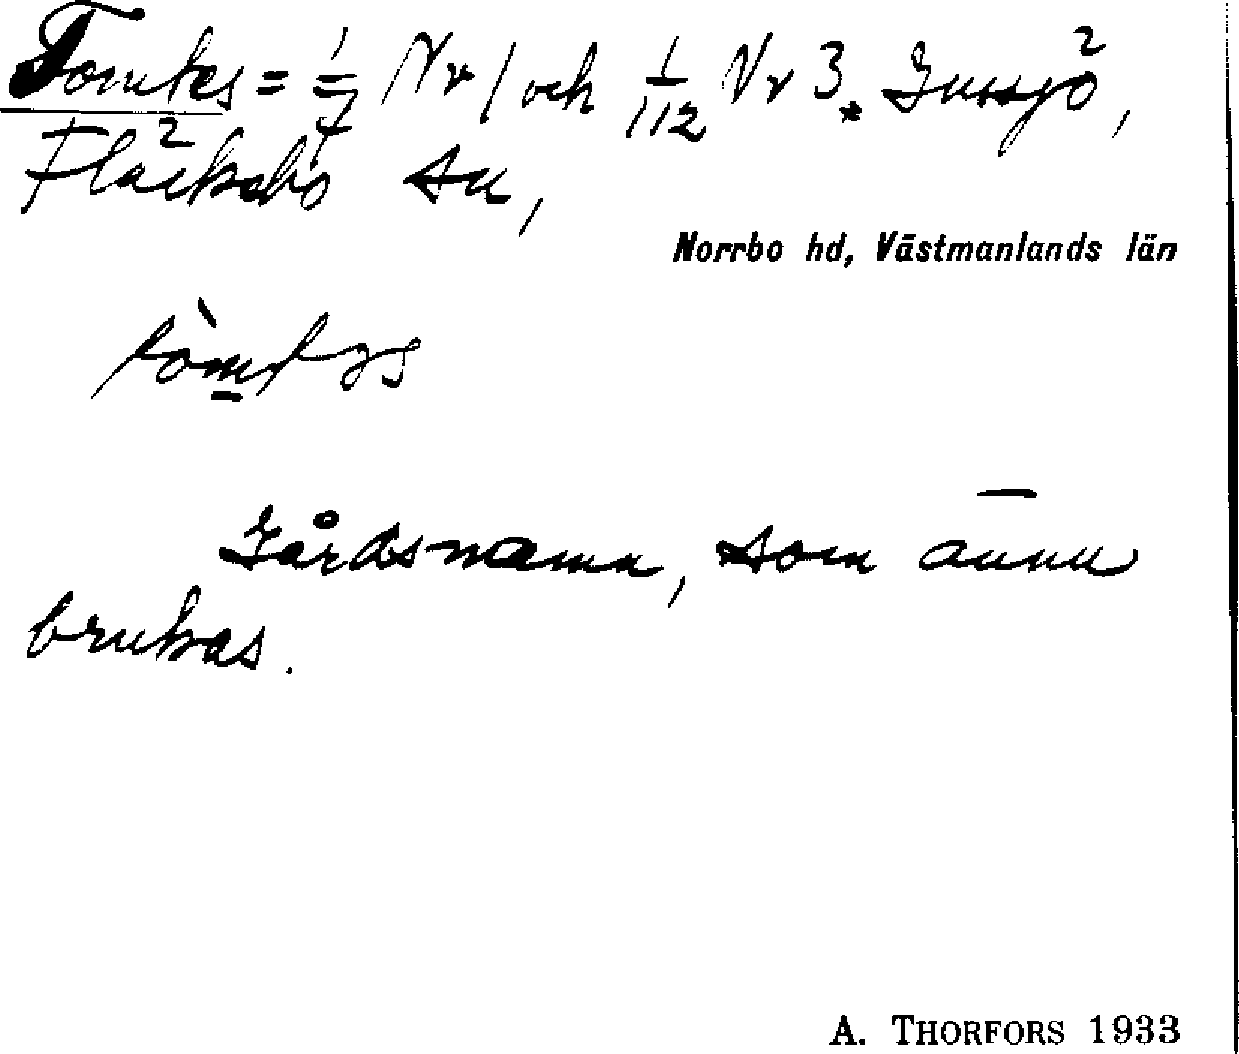 Tomtes = 1/7 Nr 1 och 1/112 Nr 3. Insjö,
Fläckebo sn,
Norrbo hd, Västmanlands län
tòmtəs
Gårdsnamn, som ännu
brukas.
A. THORFORS 1933